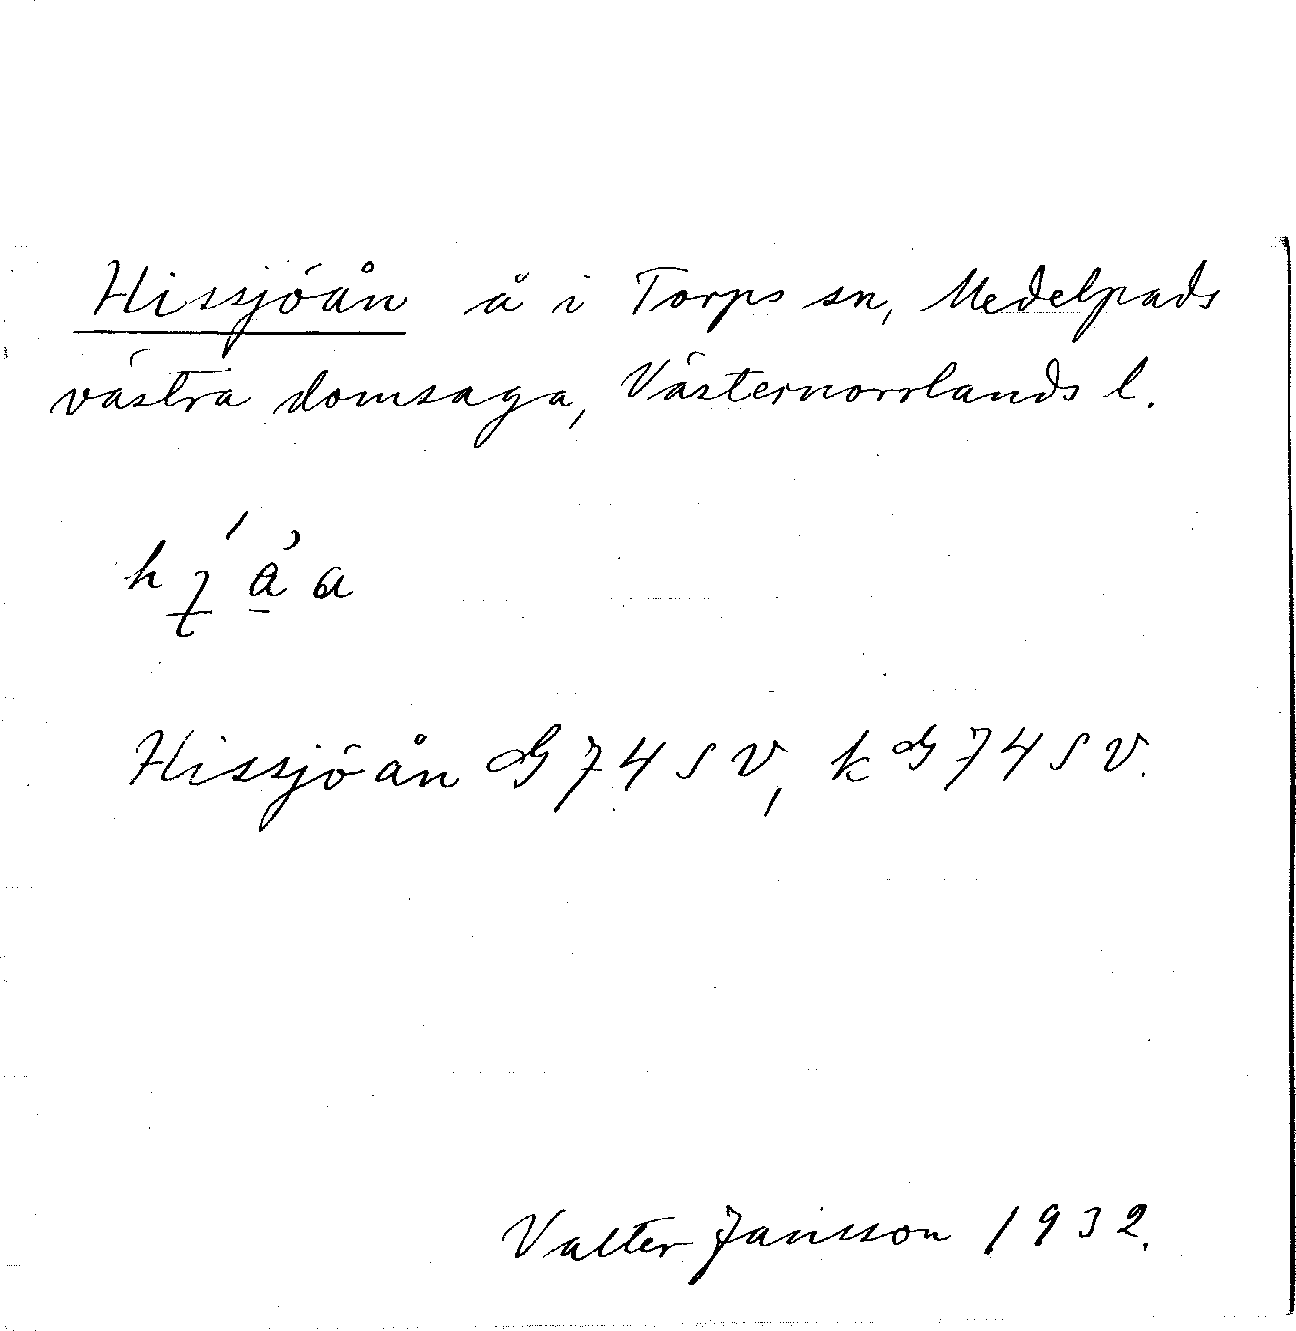 Hissjöån å i Torps sn, Medelpads
västra domsaga, Västernorrlands l.
Hissjöån G 74 SV, k G 74 SV.
Valter Jansson 1932.